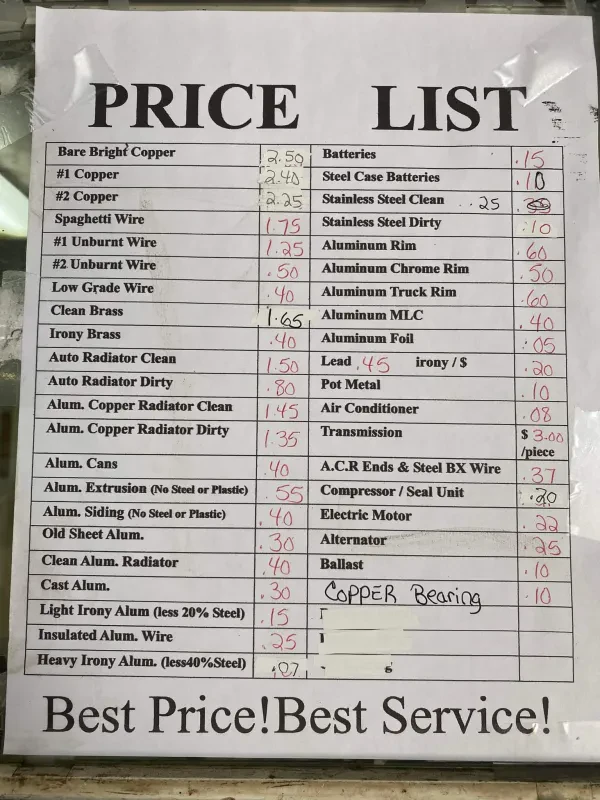 PRICE LIST
Bare Bright Copper 2.50
#1 Copper 2.40
#2 Copper 2.25
Spaghetti Wire 1.75
#1 Unburnt Wire 1.25
#2 Unburnt Wire .50
Low Grade Wire .40
Clean Brass 1.65
Irony Brass .40
Auto Radiator Clean 1.50
Auto Radiator Dirty .80
Alum. Copper Radiator Clean 1.45
Alum. Copper Radiator Dirty 1.35
Alum. Cans .40
Alum. Extrusion (No Steel or Plastic) .55
Alum. Siding (No Steel or Plastic) .40
Old Sheet Alum. .30
Clean Alum. Radiator .40
Cast Alum. .30
Light Irony Alum (less 20% Steel) .15
Insulated Alum. Wire .25
Heavy Irony Alum. (less40%Steel) .07
Batteries .15
Steel Case Batteries .10
Stainless Steel Clean ..25
Stainless Steel Dirty .10
Aluminum Rim .60
Aluminum Chrome Rim .50
Aluminum Truck Rim .60
Aluminum MLC .40
Aluminum Foil .05
Lead .45 irony / $ .20
Pot Metal .10
Air Conditioner .08
Transmission $ 3.00
/piece
A.C.R Ends & Steel BX Wire .37
Compressor / Seal Unit .20
Electric Motor .22
Alternator .25
Ballast .10
COPPER Bearing .10
Best Price!Best Service!